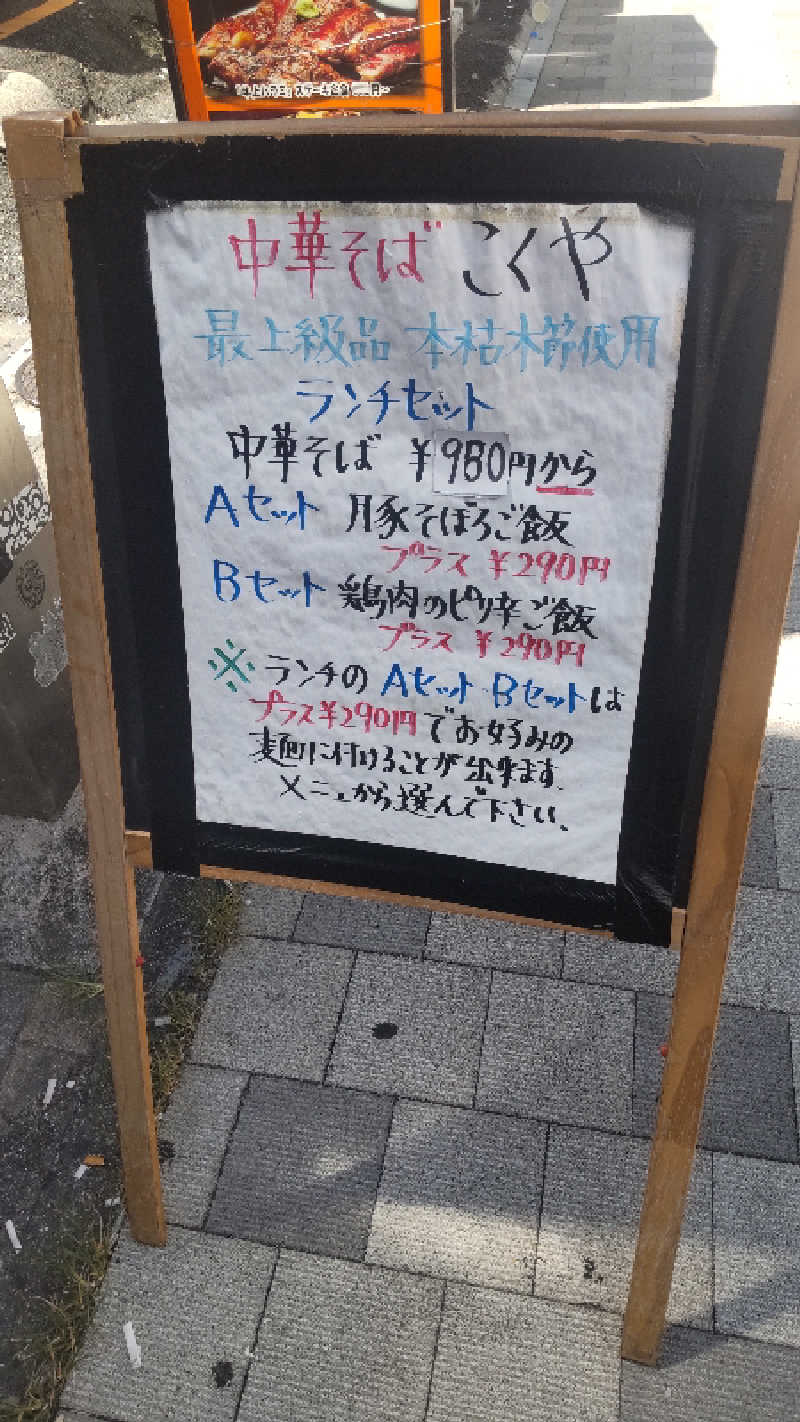 中華そば こくや
最上級品 本枯木節使用
ランチセット
中華そば ¥980円から
Aセット 豚そぼろご飯
プラス ¥290円
Bセット 鶏肉のピリ辛ご飯
プラス ¥290円
※ランチの Aセット・Bセットは
プラス¥290円でお好みの
麺に付けることが出来ます。
メニューから選んで下さい。